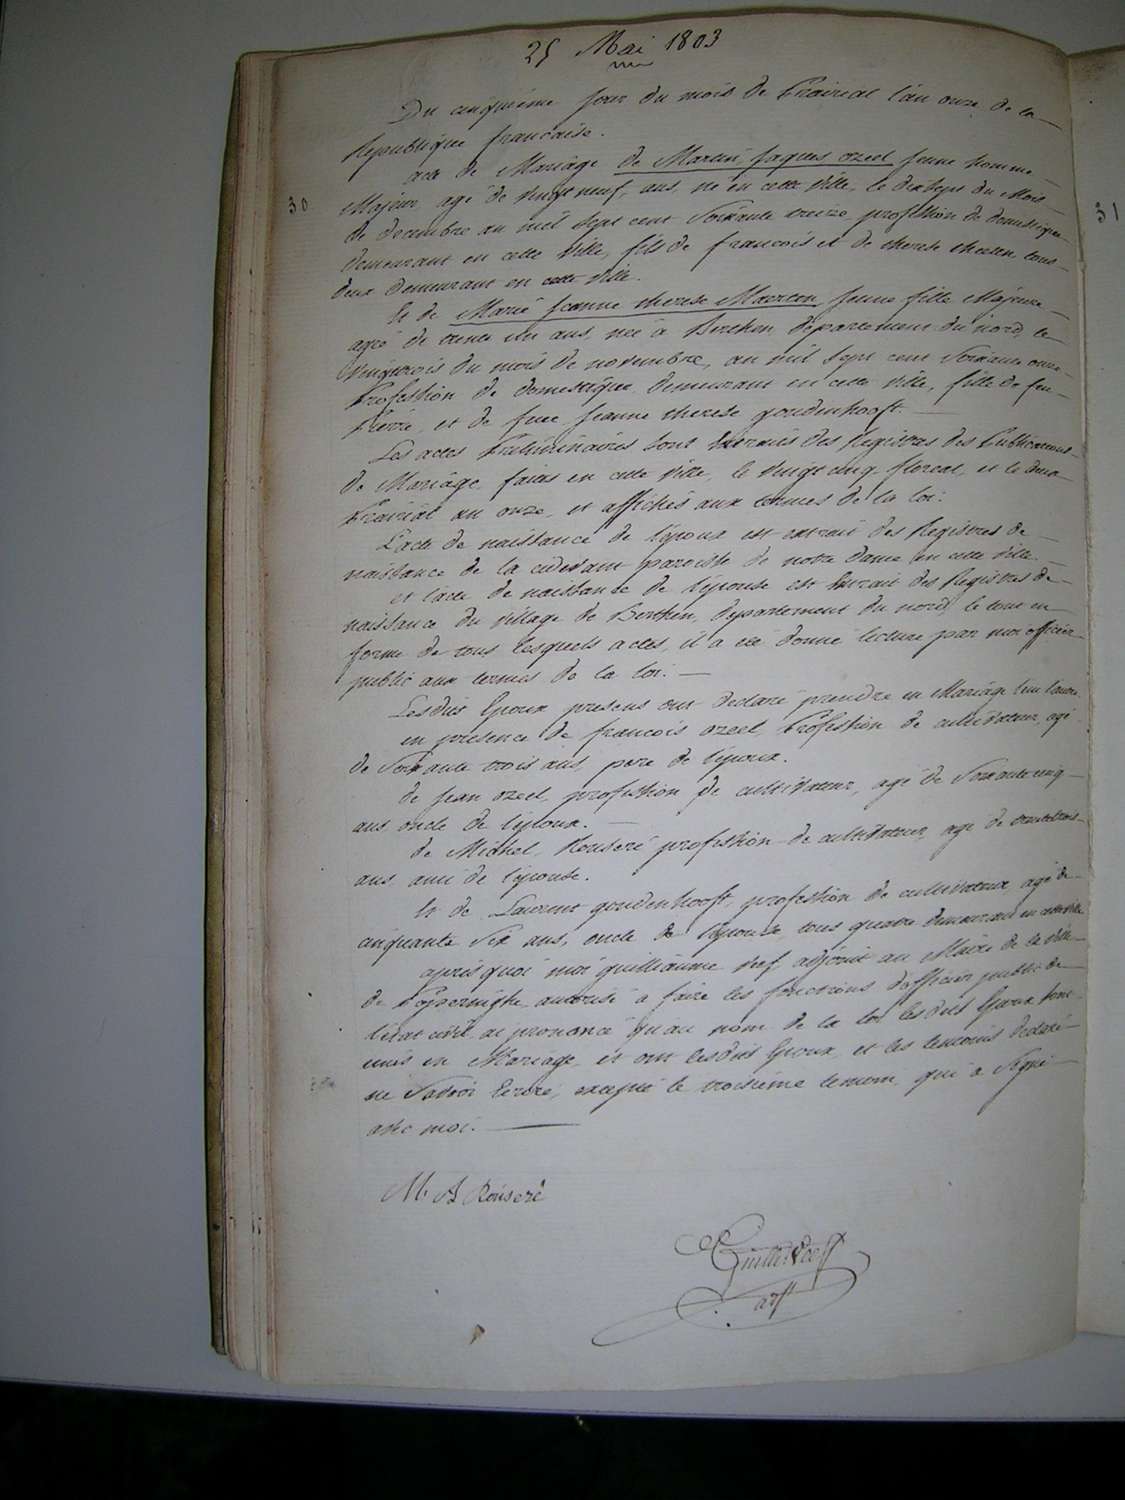 25 Mai 1803
Du cinquieme jour du mois de Prairial l'an onze de la
Republique francaise.
30
acte de Mariâge de Martin jaques ozeel jeune homme
Majeur agé de vingt neuf, ans, né en cette ville, le dix sept du Mois
de decembre an mil sept cent soixante treize profession de domestique
demeurant en cette ville, fils de francois et de therese tous
deux demeurant en cette ville.
Et de Marie jeanne therese Maerten jeune fille Majeure
agée de trente un ans, née à Berthen departement du nord, le
vingt trois du mois de novembre, an mil sept cent soixante onze
Profession de domestique demeurant en cette ville, fille de feu
Pierre, et de feue jeanne therese goudenhooft.
Les actes Preliminaires sont Extraits des Registres des Publications
de Mariâge faites en cette ville, le vingt cinq floreal, et le deux
Prairial an onze, et affichés aux termes de la loi.
L'acte de naissance de l'epoux est extrait des Registres de
naissance de la cidevant paroisse de notre dame en cette ville.
et l'acte de naissance de l'epouse est Extrait des Registres de
naissance du village de Berthen, departement du nord, le tout en
forme de tous lesquels actes, il a eté donné lecture par moi officier
public aux termes de la loi.
Lesdits Epoux presens ont declaré prendre en Mariâge l'un l'autre
en presence de francois ozeel, Profession de cultivateur, agé
de soixante trois ans, pere de l'epoux.
de jean ozeel, profession de cultivateur, agé de soixante cinq
ans, oncle de l'epoux.
de Michel Rouseré profession de cultivateur, agé de trente trois
ans, ami de l'epouse.
Et de Laurent goudenhooft, profession de cultivateur agé de
cinquante six ans, oncle de l'epouse, tous quatre demeurant en cette ville
après quoi moi guilliaume adjoint au Maire de la ville
de Poperinghe, autorisé a faire les fonctions d'officier public de
l'etat civil, ai prononcé qu'au nom de la loi lesdits Epoux sont
unis en Mariage, et ont lesdits Epoux, et les temoins declaré
ne savoir Ecrire, excepté le troisieme temoin, qui a signé
avec moi.
M. A Rouseré
adjt
31